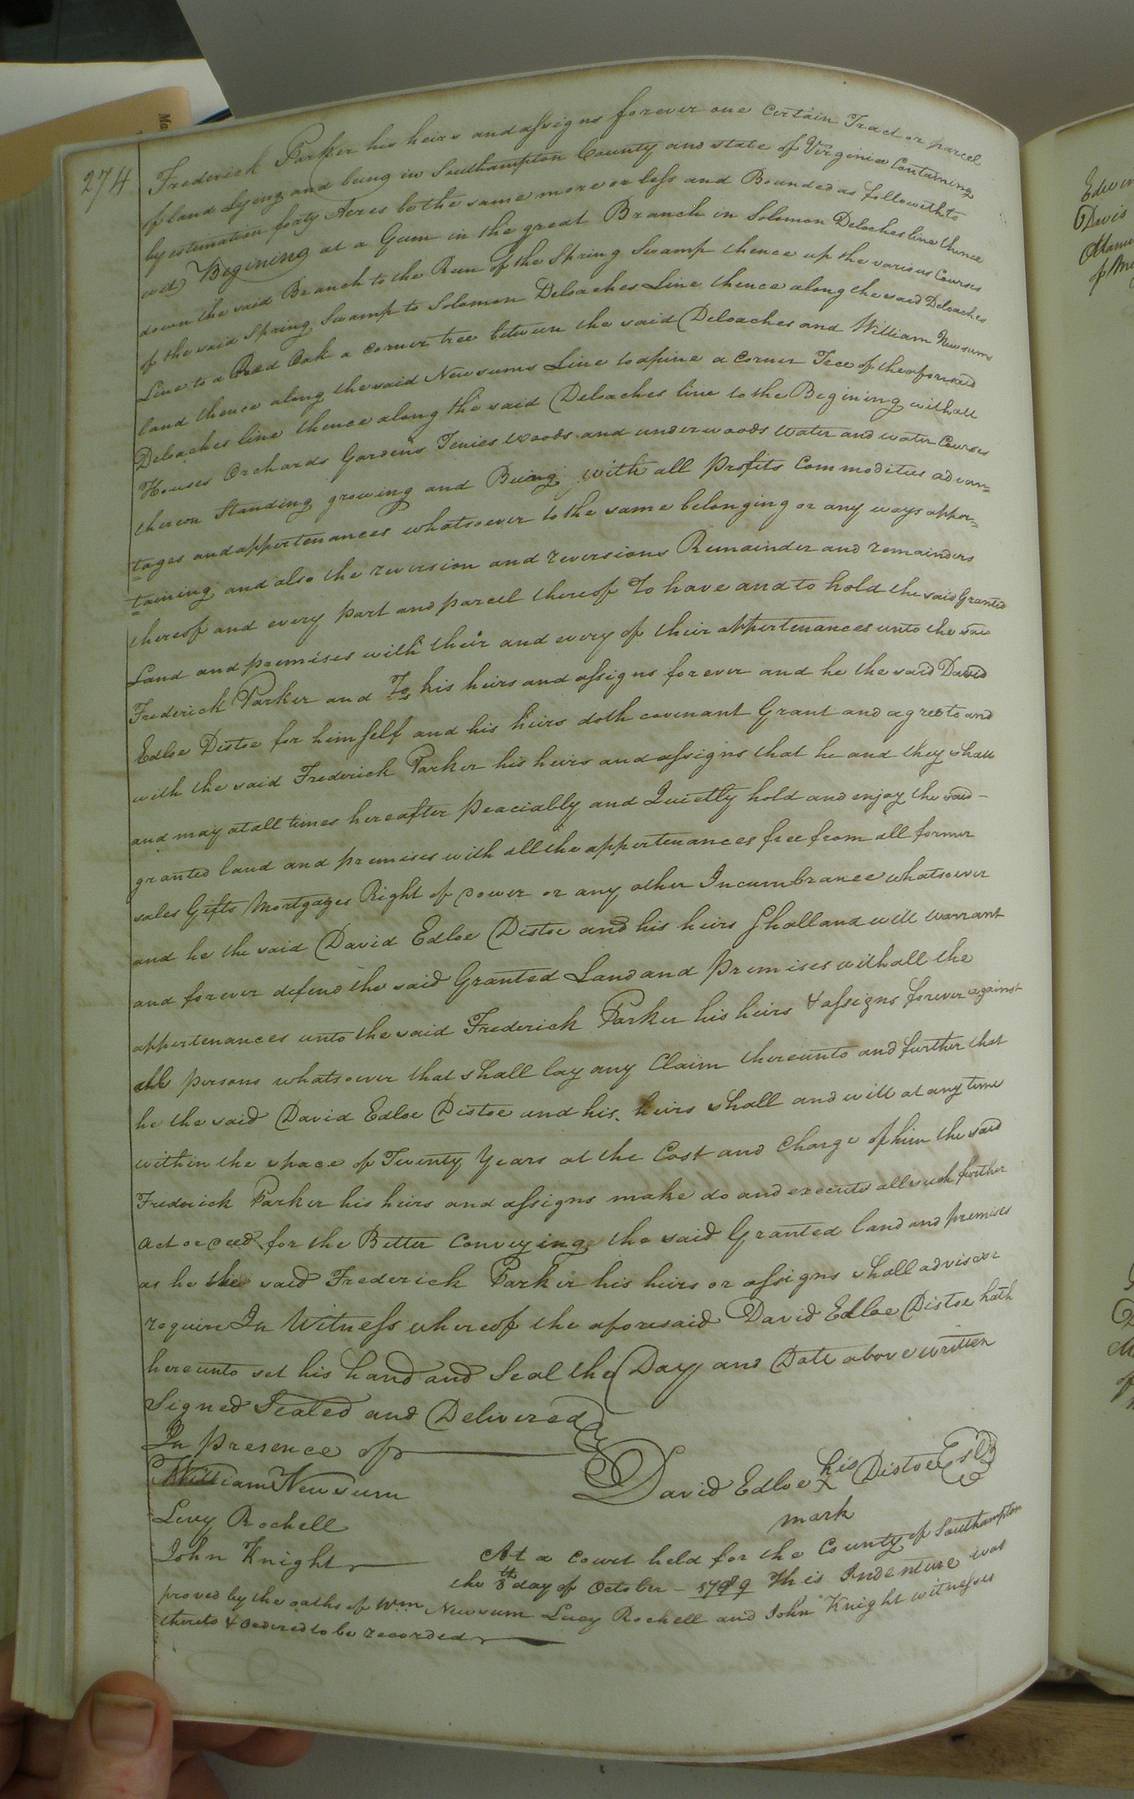 274
Frederick Parker his heirs and assigns forever one certain Tract or parcel
of land Lying and being in Southampton County and state of Virginia Containing
by estimation forty Acres be the same more or less and Bounded as followith to
wit Begining at a Gum in the great Branch in Solomon Deloaches line thence
down the said Branch to the Run of the Spring Swamp thence up the various Courses
of the said Spring Swamp to Solomon Deloaches Line thence along the said Deloaches
Line to a Red Oak a corner tree between the said Deloaches and William Newsums
land thence along the said Newsums Line to a pine a Corner Tree of the aforesaid
Deloaches line thence along the said Deloaches line to the Begining with all
Houses Orchards Gardens Fences woods and underwoods water and water Courses
thereon Standing growing and Being with all Profits Commodities advan=
tages and appertenances whatsoever to the same belonging or any ways apper=
taining and also the revirsion and reversions Remainder and remainders
thereof and every part and parcel thereof To have and to hold the said Granted
Land and premises with their and every of their appertenances unto the said
Frederick Parker and To his heirs and assigns forever and he the said David
Edloe Distoe for himself and his heirs doth covenant Grant and agree to and
with the said Frederick Parker his heirs and assigns that he and they shall
and may at all times hereafter Peaciably and Quietly hold and enjoy the said -
granted land and premises with all the appertenances free from all former
sales Gifts Mortgages Right of Dower or any other Incumbrance whatsoever
and he the said David Edloe Distoe and his heirs Shall and will warrant
and forever defend the said Granted Land and Premises with all the
appertenances unto the said Frederick Parker his heirs & assigns forever against
all persons whatsoever that shall lay any Claim thereunto and further that
he the said David Edloe Distoe and his heirs shall and will at any time
within the space of Twenty Years at the Cost and Charge of him the said
Frederick Parker his heirs and assigns make do and execute all such further
act or deed for the Better Conveying the said Granted land and premises
as he the said Frederick Parker his heirs or assigns shall advise or
require In Witness whereof the aforesaid David Edloe Distoe hath
hereunto set his hand and Seal the Day and Date above written
Signed Sealed and Delivered
In presence of
William Newsum
David Edloe his Distoe
X
mark
Levy Rochell
John Knight
At a Court held for the County of Southampton
the 8th day of October - 1789 This Indenture was
proved by the oaths of Wm Newsum Levy Rochell and John Knight witnesses
thereto & ordered to be recorded